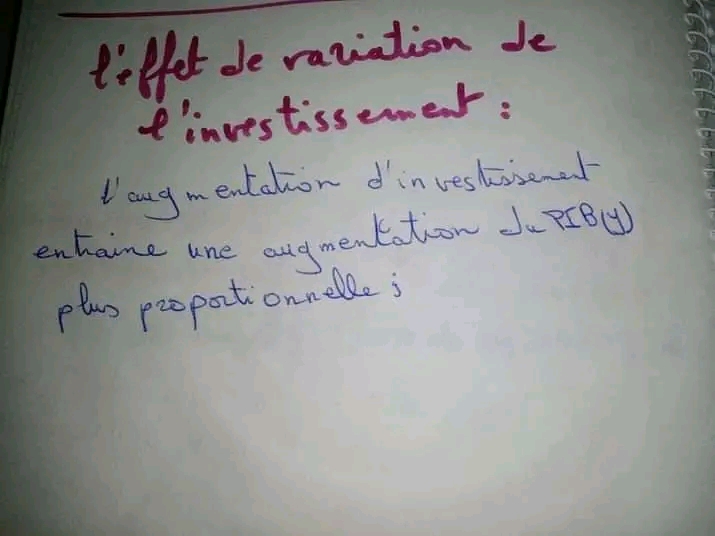 l'effet de variation de
l'investissement :
l'augmentation d'investissement
entraine une augmentation du PIB(y)
plus proportionnelle ;